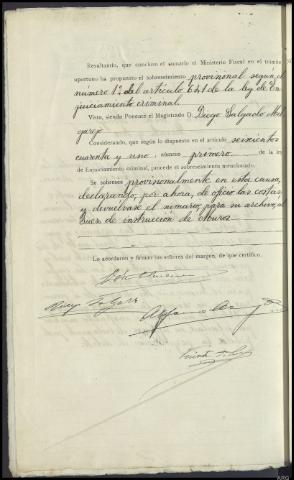 Resultando, que concluso el sumario el Ministerio Fiscal en el trámite
oportuno ha propuesto el sobreseimiento provisional segun el
número 1º del artículo 641 de la Ley de En-
juiciamiento criminal.
Visto, siendo Ponente el Magistrado D. Diego Salgado Mel-
garejo
Considerando, que según lo dispuesto en el artículo seiscientos
cuarenta y uno, número primero de la ley
de Enjuiciamiento criminal, procede el sobreseimiento mencionado.
Se sobresee provisionalmente en esta causa,
declarando, por ahora, de oficio las costas
y devuélvase el sumario, para su archivo, al
Juez de instrucción de
Lo acordaron y firman los señores del margen, de que certifico.